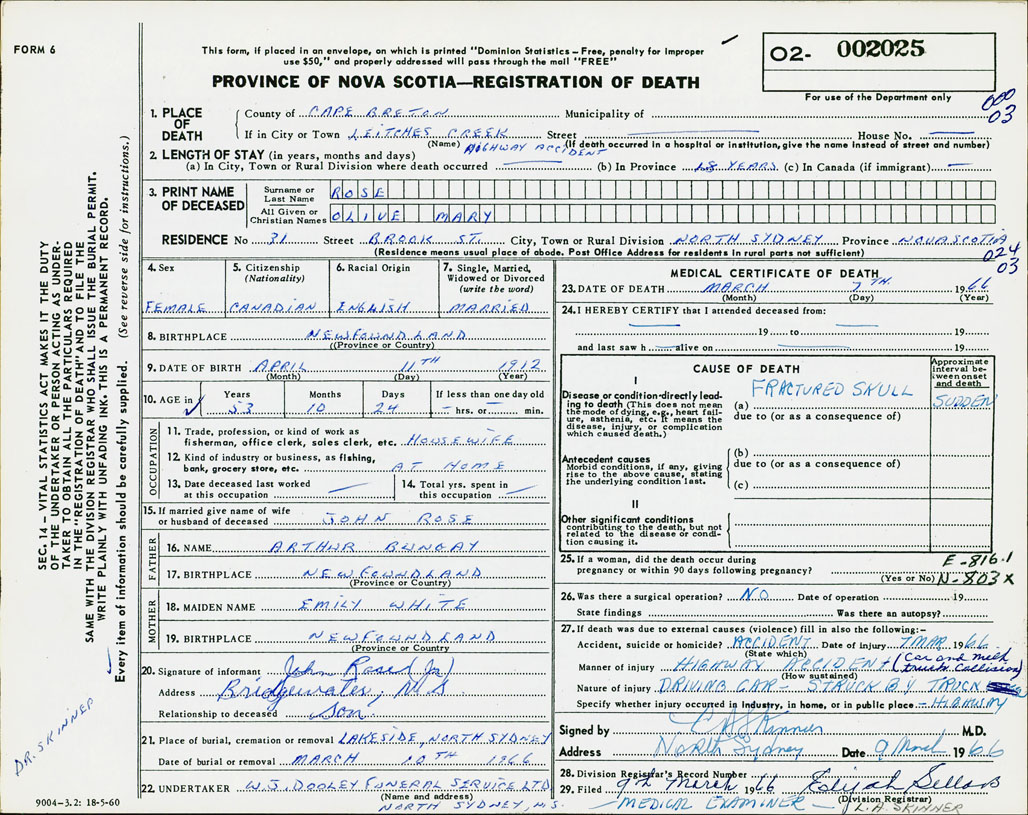 FORM 6
This form, if placed in an envelope, on which is printed "Dominion Statistics – Free, penalty for improper
use $50," and properly addressed will pass through the mail "FREE"
PROVINCE OF NOVA SCOTIA—REGISTRATION OF DEATH
O2- 002025
For use of the Department only
000
03
1. PLACE OF DEATH
County of CAPE BRETON Municipality of
If in City or Town LEITCHES CREEK Street — House No. —
(Name) HIGHWAY ACCIDENT (If death occurred in a hospital or institution, give the name instead of street and number)
2. LENGTH OF STAY (in years, months and days)
(a) In City, Town or Rural Division where death occurred — (b) In Province 48 YEARS (c) In Canada (if immigrant) —
3. PRINT NAME OF DECEASED
Surname or Last Name ROSE
All Given or Christian Names OLIVE MARY
RESIDENCE No 31 Street BROOK ST. City, Town or Rural Division NORTH SYDNEY Province NOVA SCOTIA
(Residence means usual place of abode. Post Office Address for residents in rural parts not sufficient)
024
03
4. Sex
FEMALE
5. Citizenship (Nationality)
CANADIAN
6. Racial Origin
ENGLISH
7. Single, Married, Widowed or Divorced (write the word)
MARRIED
8. BIRTHPLACE NEWFOUNDLAND
(Province or Country)
9. DATE OF BIRTH APRIL 11TH 1912
(Month) (Day) (Year)
10. AGE in Years Months Days If less than one day old
53 10 24 – hrs. or – min.
OCCUPATION
11. Trade, profession, or kind of work as
fisherman, office clerk, sales clerk, etc. HOUSEWIFE
12. Kind of industry or business, as fishing,
bank, grocery store, etc. AT HOME
13. Date deceased last worked
at this occupation —
14. Total yrs. spent in
this occupation —
15. If married give name of wife
or husband of deceased JOHN ROSE
FATHER
16. NAME ARTHUR BUNGAY
17. BIRTHPLACE NEWFOUNDLAND
(Province or Country)
MOTHER
18. MAIDEN NAME EMILY WHITE
19. BIRTHPLACE NEWFOUNDLAND
(Province or Country)
20. Signature of informant John Rose (Jr)
Address Bridgewater, N.S
Relationship to deceased Son
21. Place of burial, cremation or removal LAKESIDE, NORTH SYDNEY
Date of burial or removal MARCH 10TH 1966
22. UNDERTAKER W.J. DOOLEY FUNERAL SERVICE LTD
(Name and address)
NORTH SYDNEY, N.S.
9004—3.2: 18-5-60
MEDICAL CERTIFICATE OF DEATH
23. DATE OF DEATH MARCH 7TH 1966
(Month) (Day) (Year)
24. I HEREBY CERTIFY that I attended deceased from:
— 19 to — 19
and last saw h — alive on — 19
CAUSE OF DEATH
Approximate interval between onset and death
I
Disease or condition directly leading to death (This does not mean the mode of dying, e.g., heart failure, asthenia, etc. It means the disease, injury, or complication which caused death.)
(a) FRACTURED SKULL SUDDEN
due to (or as a consequence of)
Antecedent causes
Morbid conditions, if any, giving rise to the above cause, stating the underlying condition last.
(b)
due to (or as a consequence of)
(c)
II
Other significant conditions
contributing to the death, but not related to the disease or condition causing it.
25. If a woman, did the death occur during
pregnancy or within 90 days following pregnancy?
(Yes or No)
E-816.1
N-803 X
26. Was there a surgical operation? NO Date of operation 19
State findings Was there an autopsy?
27. If death was due to external causes (violence) fill in also the following:–
Accident, suicide or homicide? ACCIDENT Date of injury 7 MAR 1966
(State which)
Manner of injury HIGHWAY ACCIDENT (Car and milk truck Collision)
(How sustained)
Nature of injury DRIVING CAR – STRUCK BY TRUCK
Specify whether injury occurred in industry, in home, or in public place – HIGHWAY
Signed by L A Skinner M.D.
Address North Sydney Date 9 March 1966
28. Division Registrar's Record Number
29. Filed 9th March 1966 Elijah Sellars
(Division Registrar)
MEDICAL EXAMINER – L.A. SKINNER
SEC. 14 – VITAL STATISTICS ACT MAKES IT THE DUTY
OF THE UNDERTAKER OR PERSON ACTING AS UNDER-
TAKER TO OBTAIN ALL THE PARTICULARS REQUIRED
IN THE "REGISTRATION OF DEATH" AND TO FILE THE
SAME WITH THE DIVISION REGISTRAR WHO SHALL ISSUE THE BURIAL PERMIT.
WRITE PLAINLY WITH UNFADING INK. THIS IS A PERMANENT RECORD.
Every item of information should be carefully supplied. (See reverse side for instructions.)
DR. SKINNER